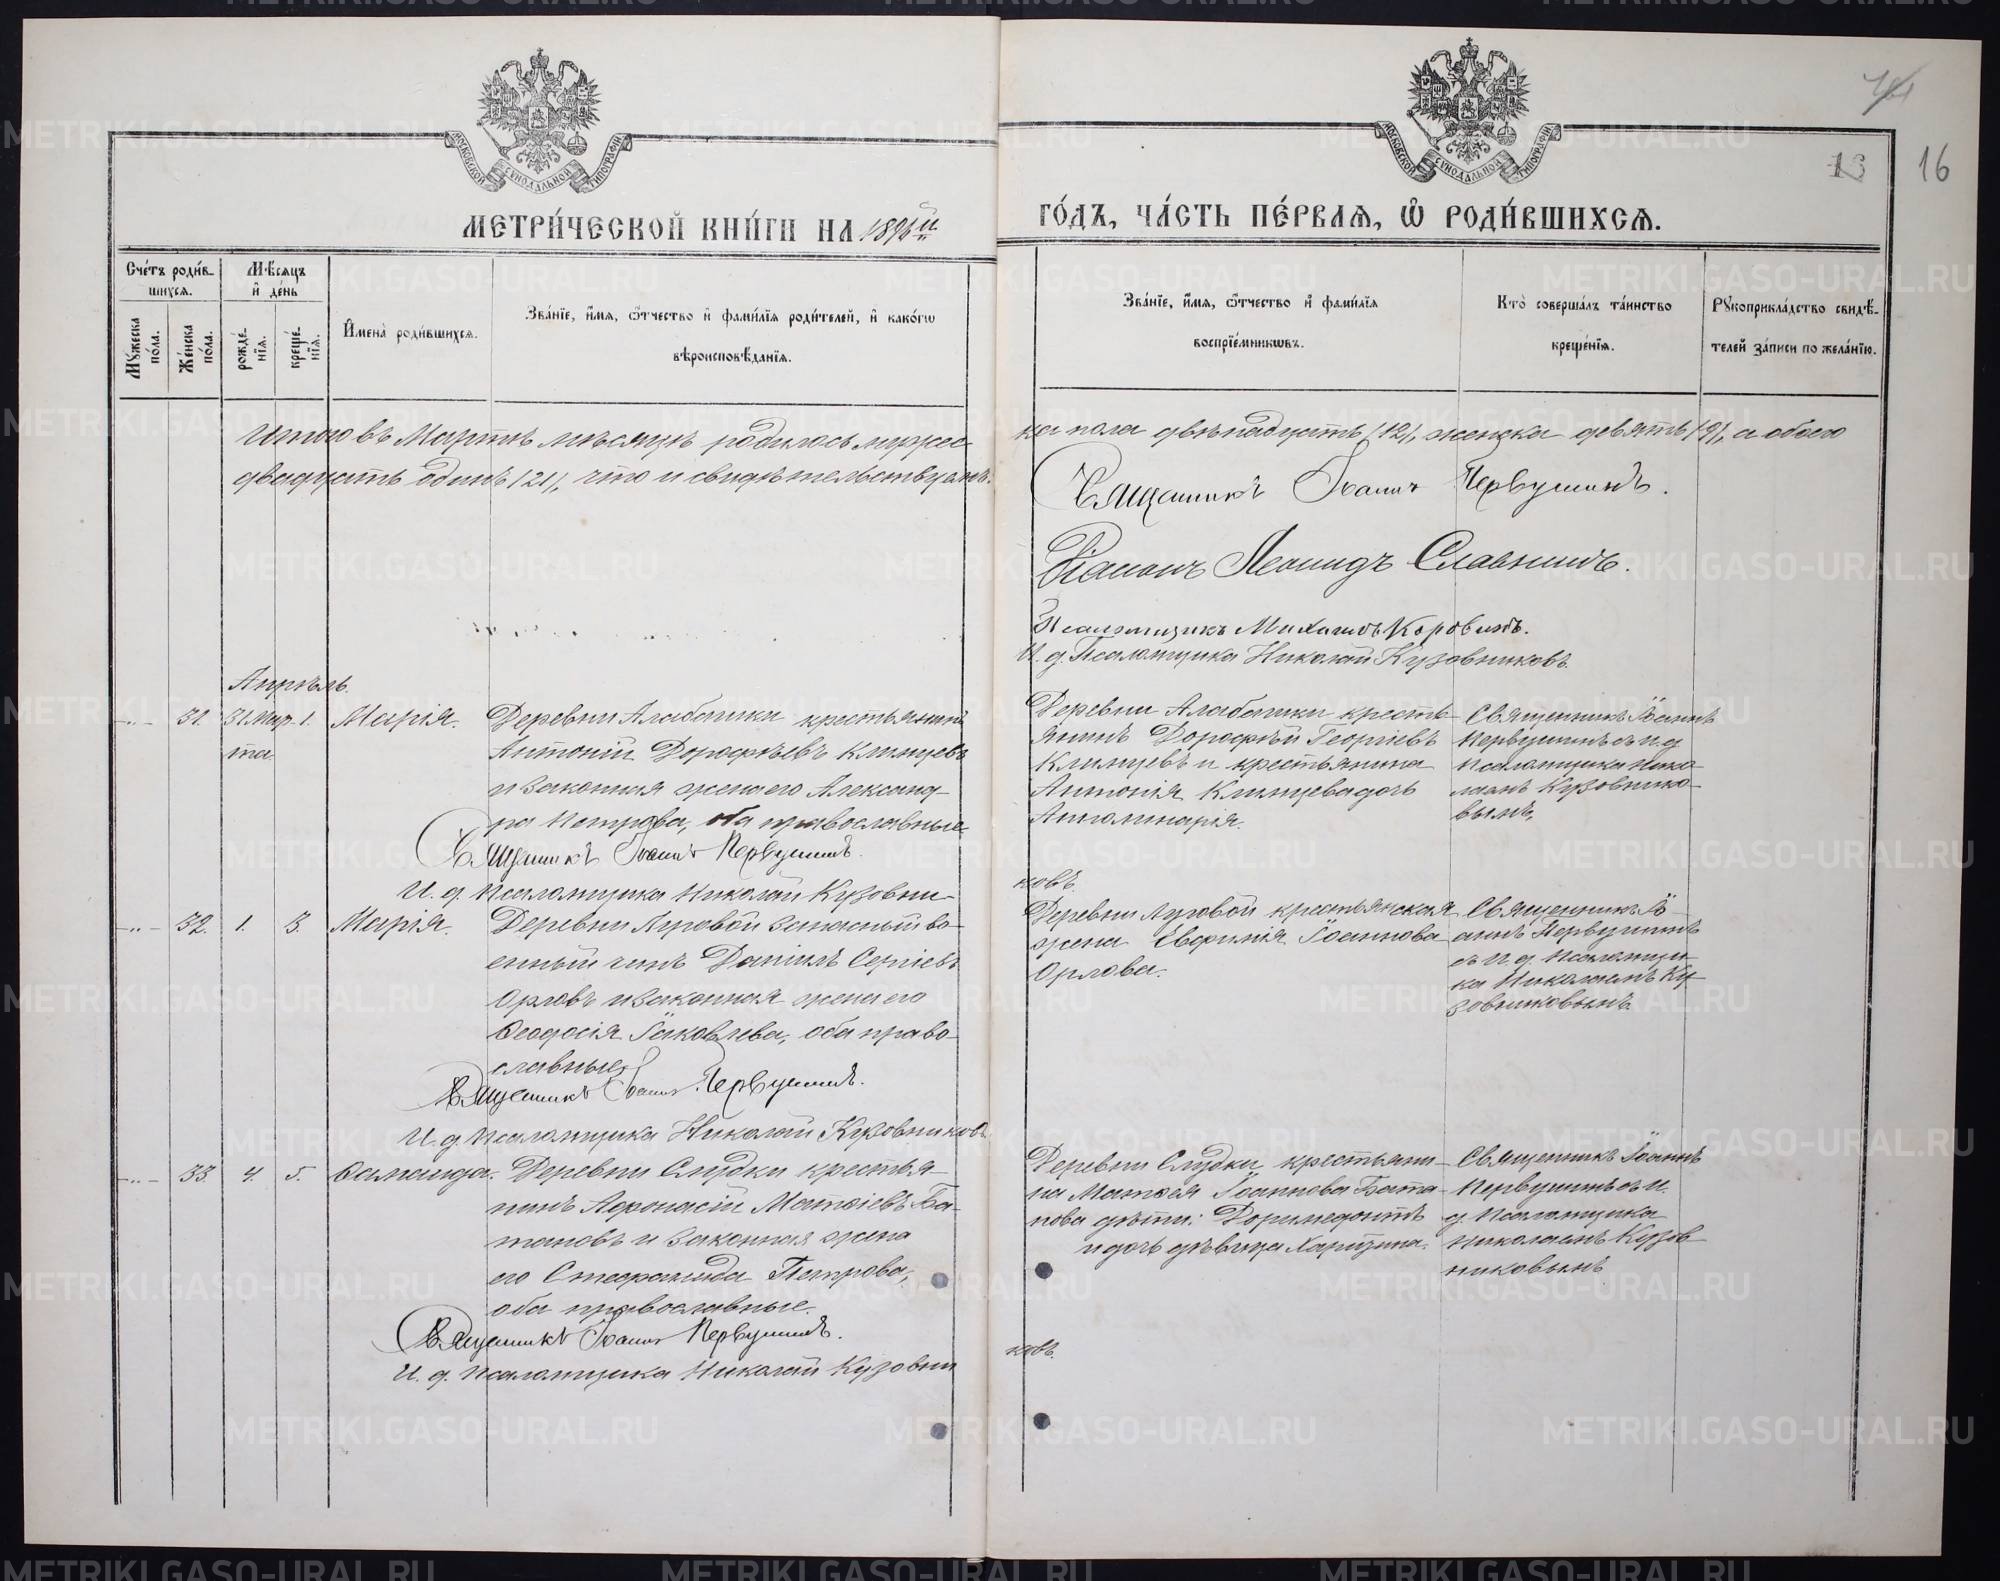 МОСКОВСКОЙ СѴНОДАЛЬНОЙ ТИПОГРАФІИ
МОСКОВСКОЙ СѴНОДАЛЬНОЙ ТИПОГРАФІИ
13
16
МЕТРИ́ЧЕСКОЙ КНИ́ГИ НА 1896й
ГО́ДЪ, ЧА́СТЬ ПЕ́РВАѦ, Ѡ҆ РОДИ́ВШИХСѦ.
Сче́тъ роди́в-
шихсѧ.
Мꙋ́жеска по́ла.
Же́нска по́ла.
Мѣ́сѧцъ
и҆ де́нь
рожде́нїѧ.
креще́нїѧ.
И҆мена̀ роди́вшихсѧ.
Зва́нїе, и҆́мѧ, ѻ҆́тчество и҆ фами́лїѧ роди́телей, и҆ како́гѡ
вѣроисповѣ́данїѧ.
Зва́нїе, и҆́мѧ, ѻ҆́тчество и҆ фами́лїѧ
воспрїе́мникѡвъ.
Кто̀ соверша́лъ та́инство
креще́нїѧ.
Рꙋкоприкла́дство свидѣ́-
телей за́писи по жела́нїю.
Итого въ Мартѣ мѣсяцѣ родилось мужес-
ка пола двѣнадцать /12/, женска девять /9/, а обоего
двадцать одинъ /21/, что и свидѣтельствуемъ.
Священникъ Іоаннъ Первушинъ.
Діаконъ Леонидъ Славнинъ.
Псаломщикъ Михаилъ Коровинъ.
И. д. Псаломщика Николай Кузовниковъ.
Апрѣль.
-"- 31. 31 Мар- 1. Марія.
та.
Деревни Алабашки крестьянинъ
Антоній Дорофѣевъ Клинцевъ
и законная жена его Александ-
ра Петрова, оба православные.
Священникъ Іоаннъ Первушинъ.
И. д. Псаломщика Николай Кузовни-
ковъ.
Деревни Алабашки кресть-
янинъ Дорофѣй Георгіевъ
Клинцевъ и крестьянина
Антонія Клинцева дочь
Апполинарія.
Священникъ Іоаннъ
Первушинъ съ и. д.
Псаломщика Нико-
лаемъ Кузовнико-
вымъ.
-"- 32. 1. 3. Марія.
Деревни Луговой запасный во-
енный чинъ Даніилъ Сергіевъ
Орловъ и законная жена его
Ѳеодосія Іаковлева, оба право-
славные.
Священникъ Іоаннъ Первушинъ.
И. д. Псаломщика Николай Кузовниковъ
Деревни Луговой крестьянская
жена Евфимія Іоаннова
Орлова.
Священникъ Іо-
аннъ Первушинъ
съ И. д. Псаломщи-
ка Николаемъ Ку-
зовниковымъ.
-"- 33. 4. 5. Ѳомаида.
Деревни Слудки крестья-
нинъ Афонасій Матѳіевъ Ба-
тановъ и законная жена
его Стефанида Петрова,
оба православные.
Священникъ Іоаннъ Первушинъ.
И. д. Псаломщика Николай Кузовни
ковъ.
Деревни Слудки крестьяни-
на Матѳея Іоаннова Бата-
нова дѣти: Доримедонтъ
и дочь дѣвица Харитина.
Священникъ Іоаннъ
Первушинъ съ и.
д. Псаломщика
Николаемъ Кузов
никовымъ
METRIKI.GASO-URAL.RU